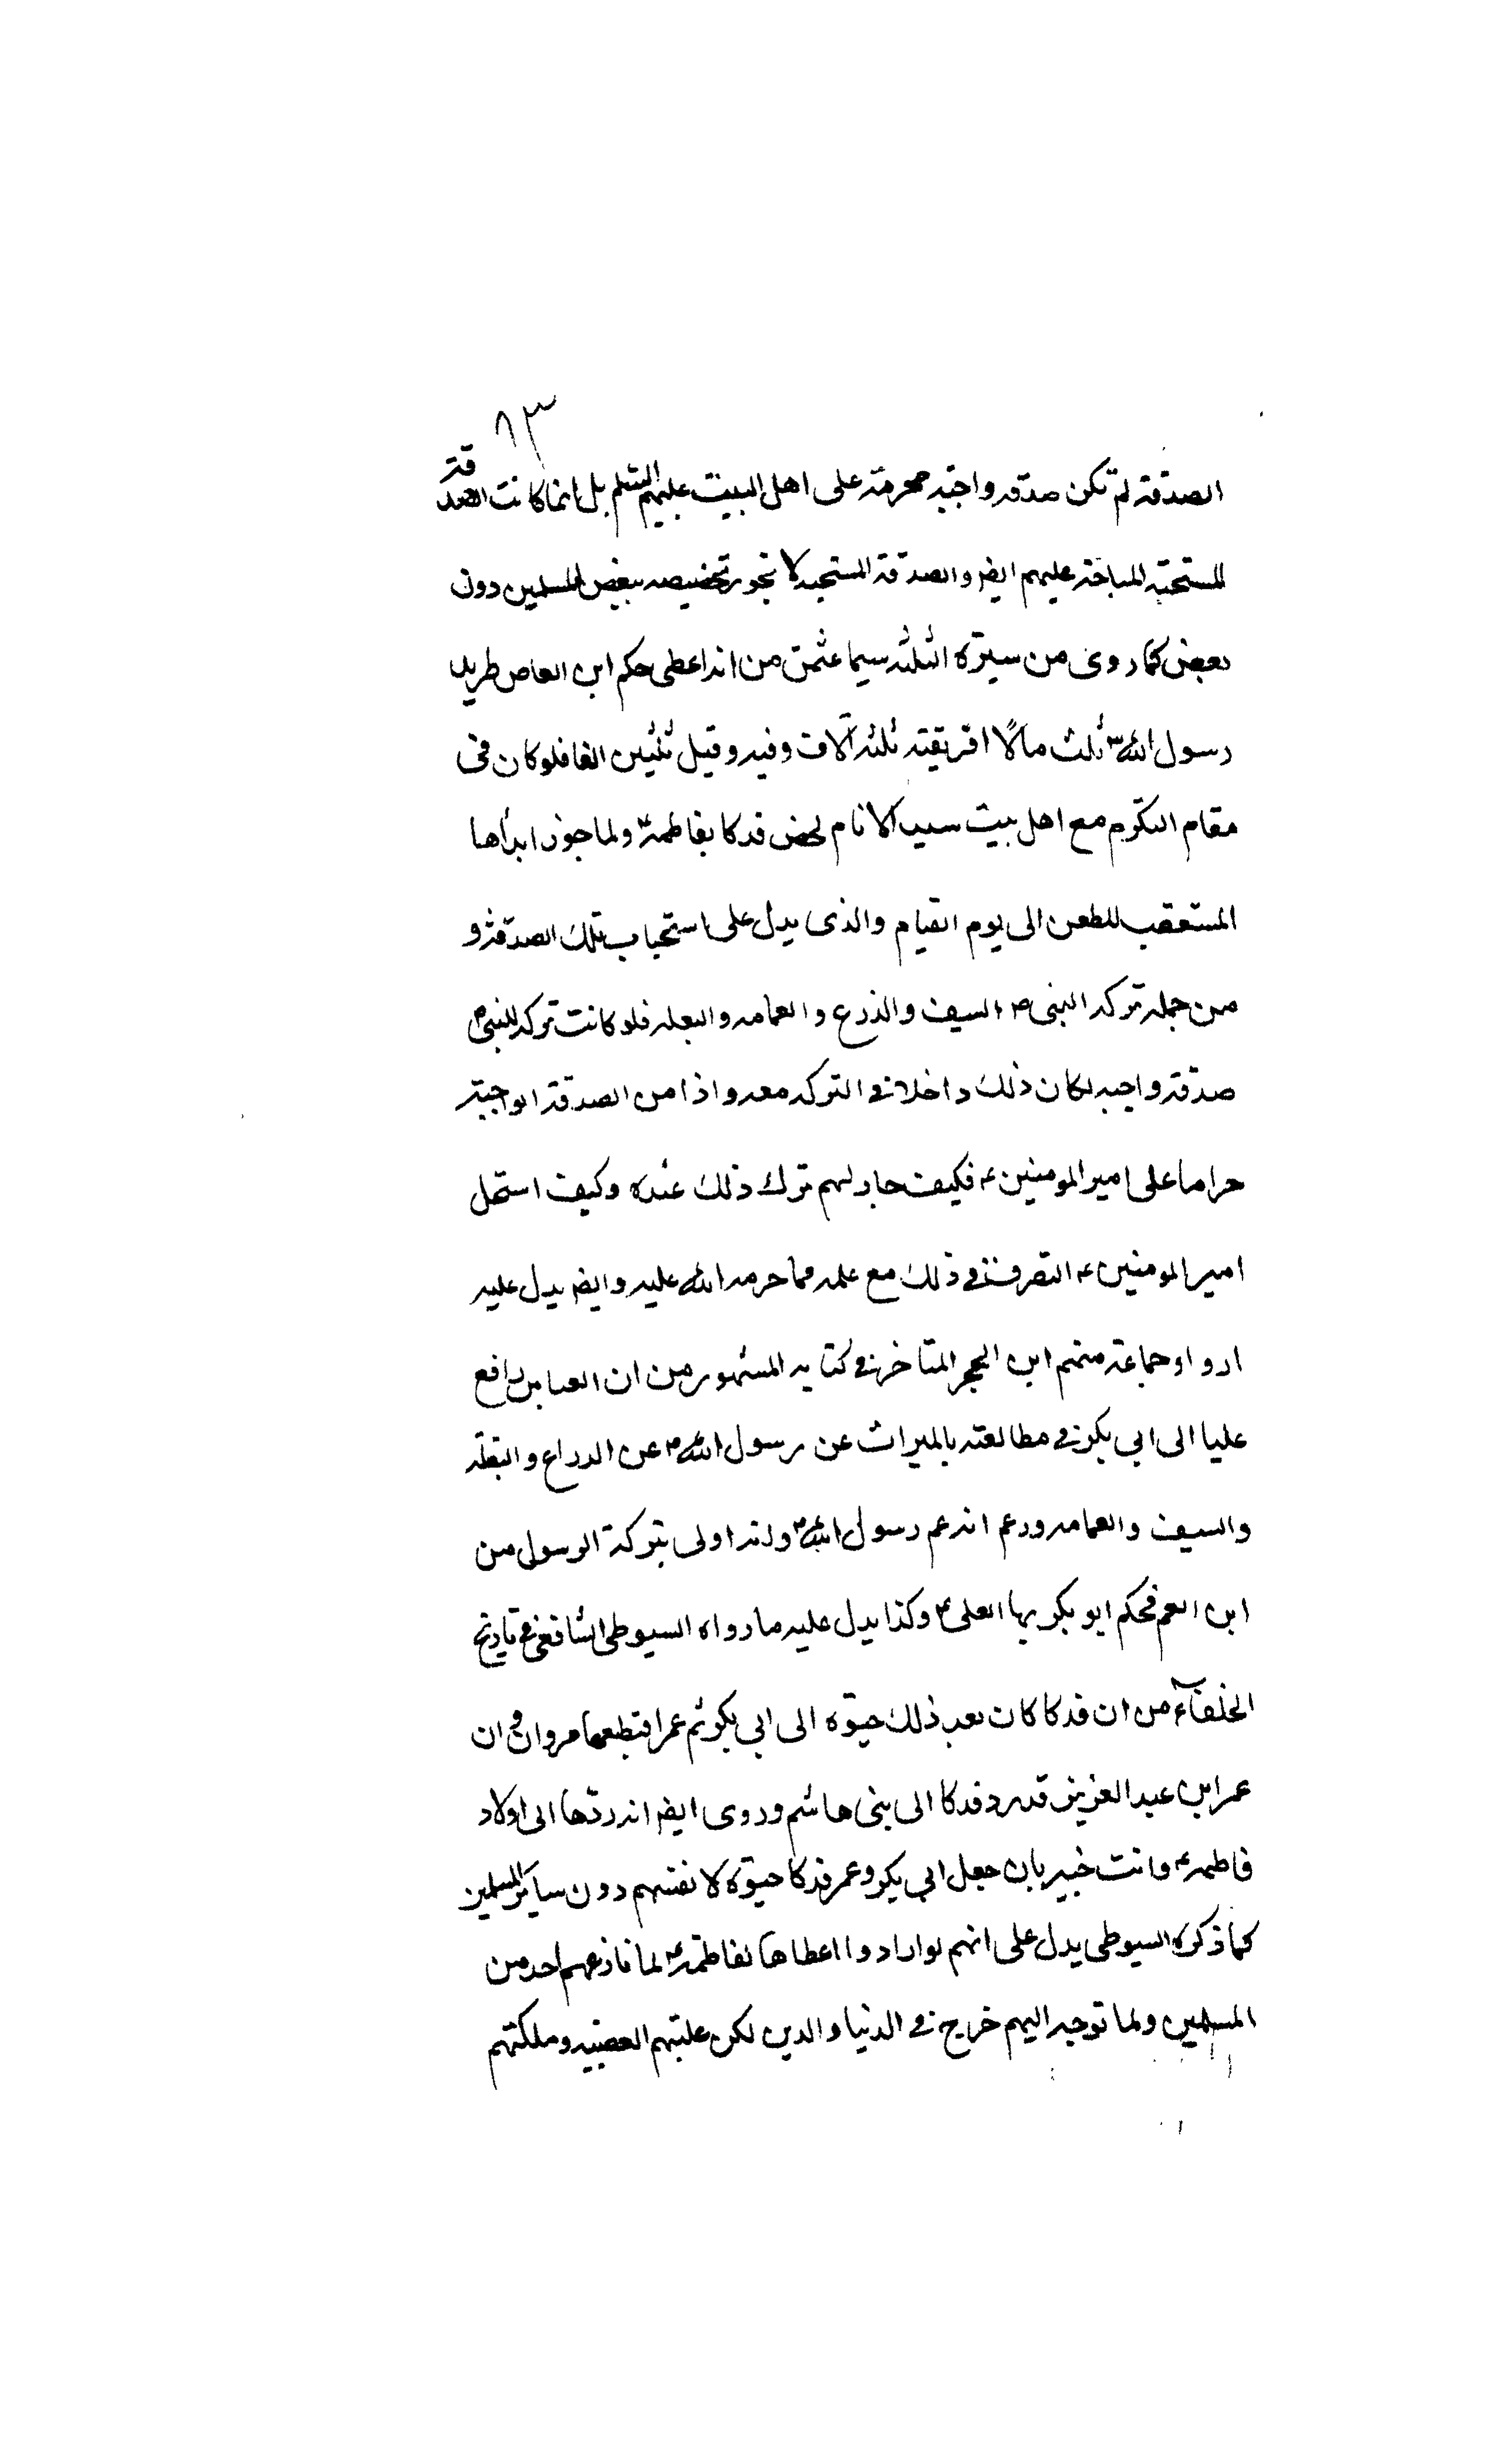 ٨٣
الصدقة لم تكن صدقه واجبه محرمة على اهل البيت عليهم السلم بل انما كانت الصدقة
المستحبة المباحة عليهم ايضا والصدقة المستحبه لا تجوز تخصيصه ببعض المسلمين دون
بعض كما روى من سيرة الثلثه سيما عثمن من انه اعطى حكم ابن العاص طريد
رسول الله ص ثلث مالا افريقيه ثلثه آلاف وفيه وقيل ثلثين الفا فلو كان فى
مقام التكرم مع اهل بيت سيد الانام لخص فدكا بفاطمة ع ولما جوز ابذاها
المستعقب للطعن الى يوم القيام والذى يدل على استحباب تلك الصدقة و
من جمله تركه النبى ص السيف والذرع والعمامه والبعله فلو كانت تركه للنبى ص
صدقة واجبه لكان ذلك داخلا فى التركه معه واذا من الصدقة الواجبة
حراما على امير المومنين ع فكيف جاز لهم ترك ذلك عنده وكيف استحل
امير المومنين ع التصرف فى ذلك مع علمه مما حرمه الله عليه وايضا يدل عليه
اروا وجماعة منهم ابن الحجر المتاخر فى كتابه المشهور من ان العباس رافع
عليا الى ابى بكر فى مطالعته بالميراث عن رسول الله ص عن الدراع والبغلة
والسيف والعمامه وزعم انه عم رسول الله ص وانه اولى بتركة الرسول من
ابن العم فحكم ابو بكر بها لعلى ع وكذا يدل عليه ما رواه السيوطى الشافعى فى تاريخ
الخلفاء من ان فدكا كان بعد ذلك حبوة الى ابى بكر ثم عمر اقتطعها مروان و ان
عمر ابن عبد العزيز قد رد فدكا الى بنى هاشم وروى ايضا انه ردها الى اولاد
فاطمه ع وانت خبير بان جعل ابى بكر وعمر فدكا حبوة لانفسهم دون سائر المسلمين
كما ذكره السيوطى يدل على انهم لو ارادوا اعطاها لفاطمه ع لما نازعهم احد من
المسلمين ولما توجه اليهم خرج فى الدنيا والدين لكن غلبتهم العصبيه وملكتهم